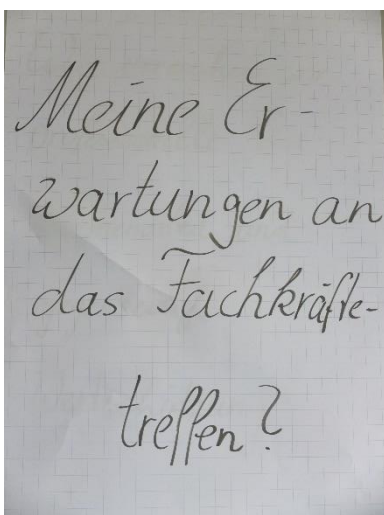 Meine Er-
wartungen an
das Fachkräfte-
treffen?